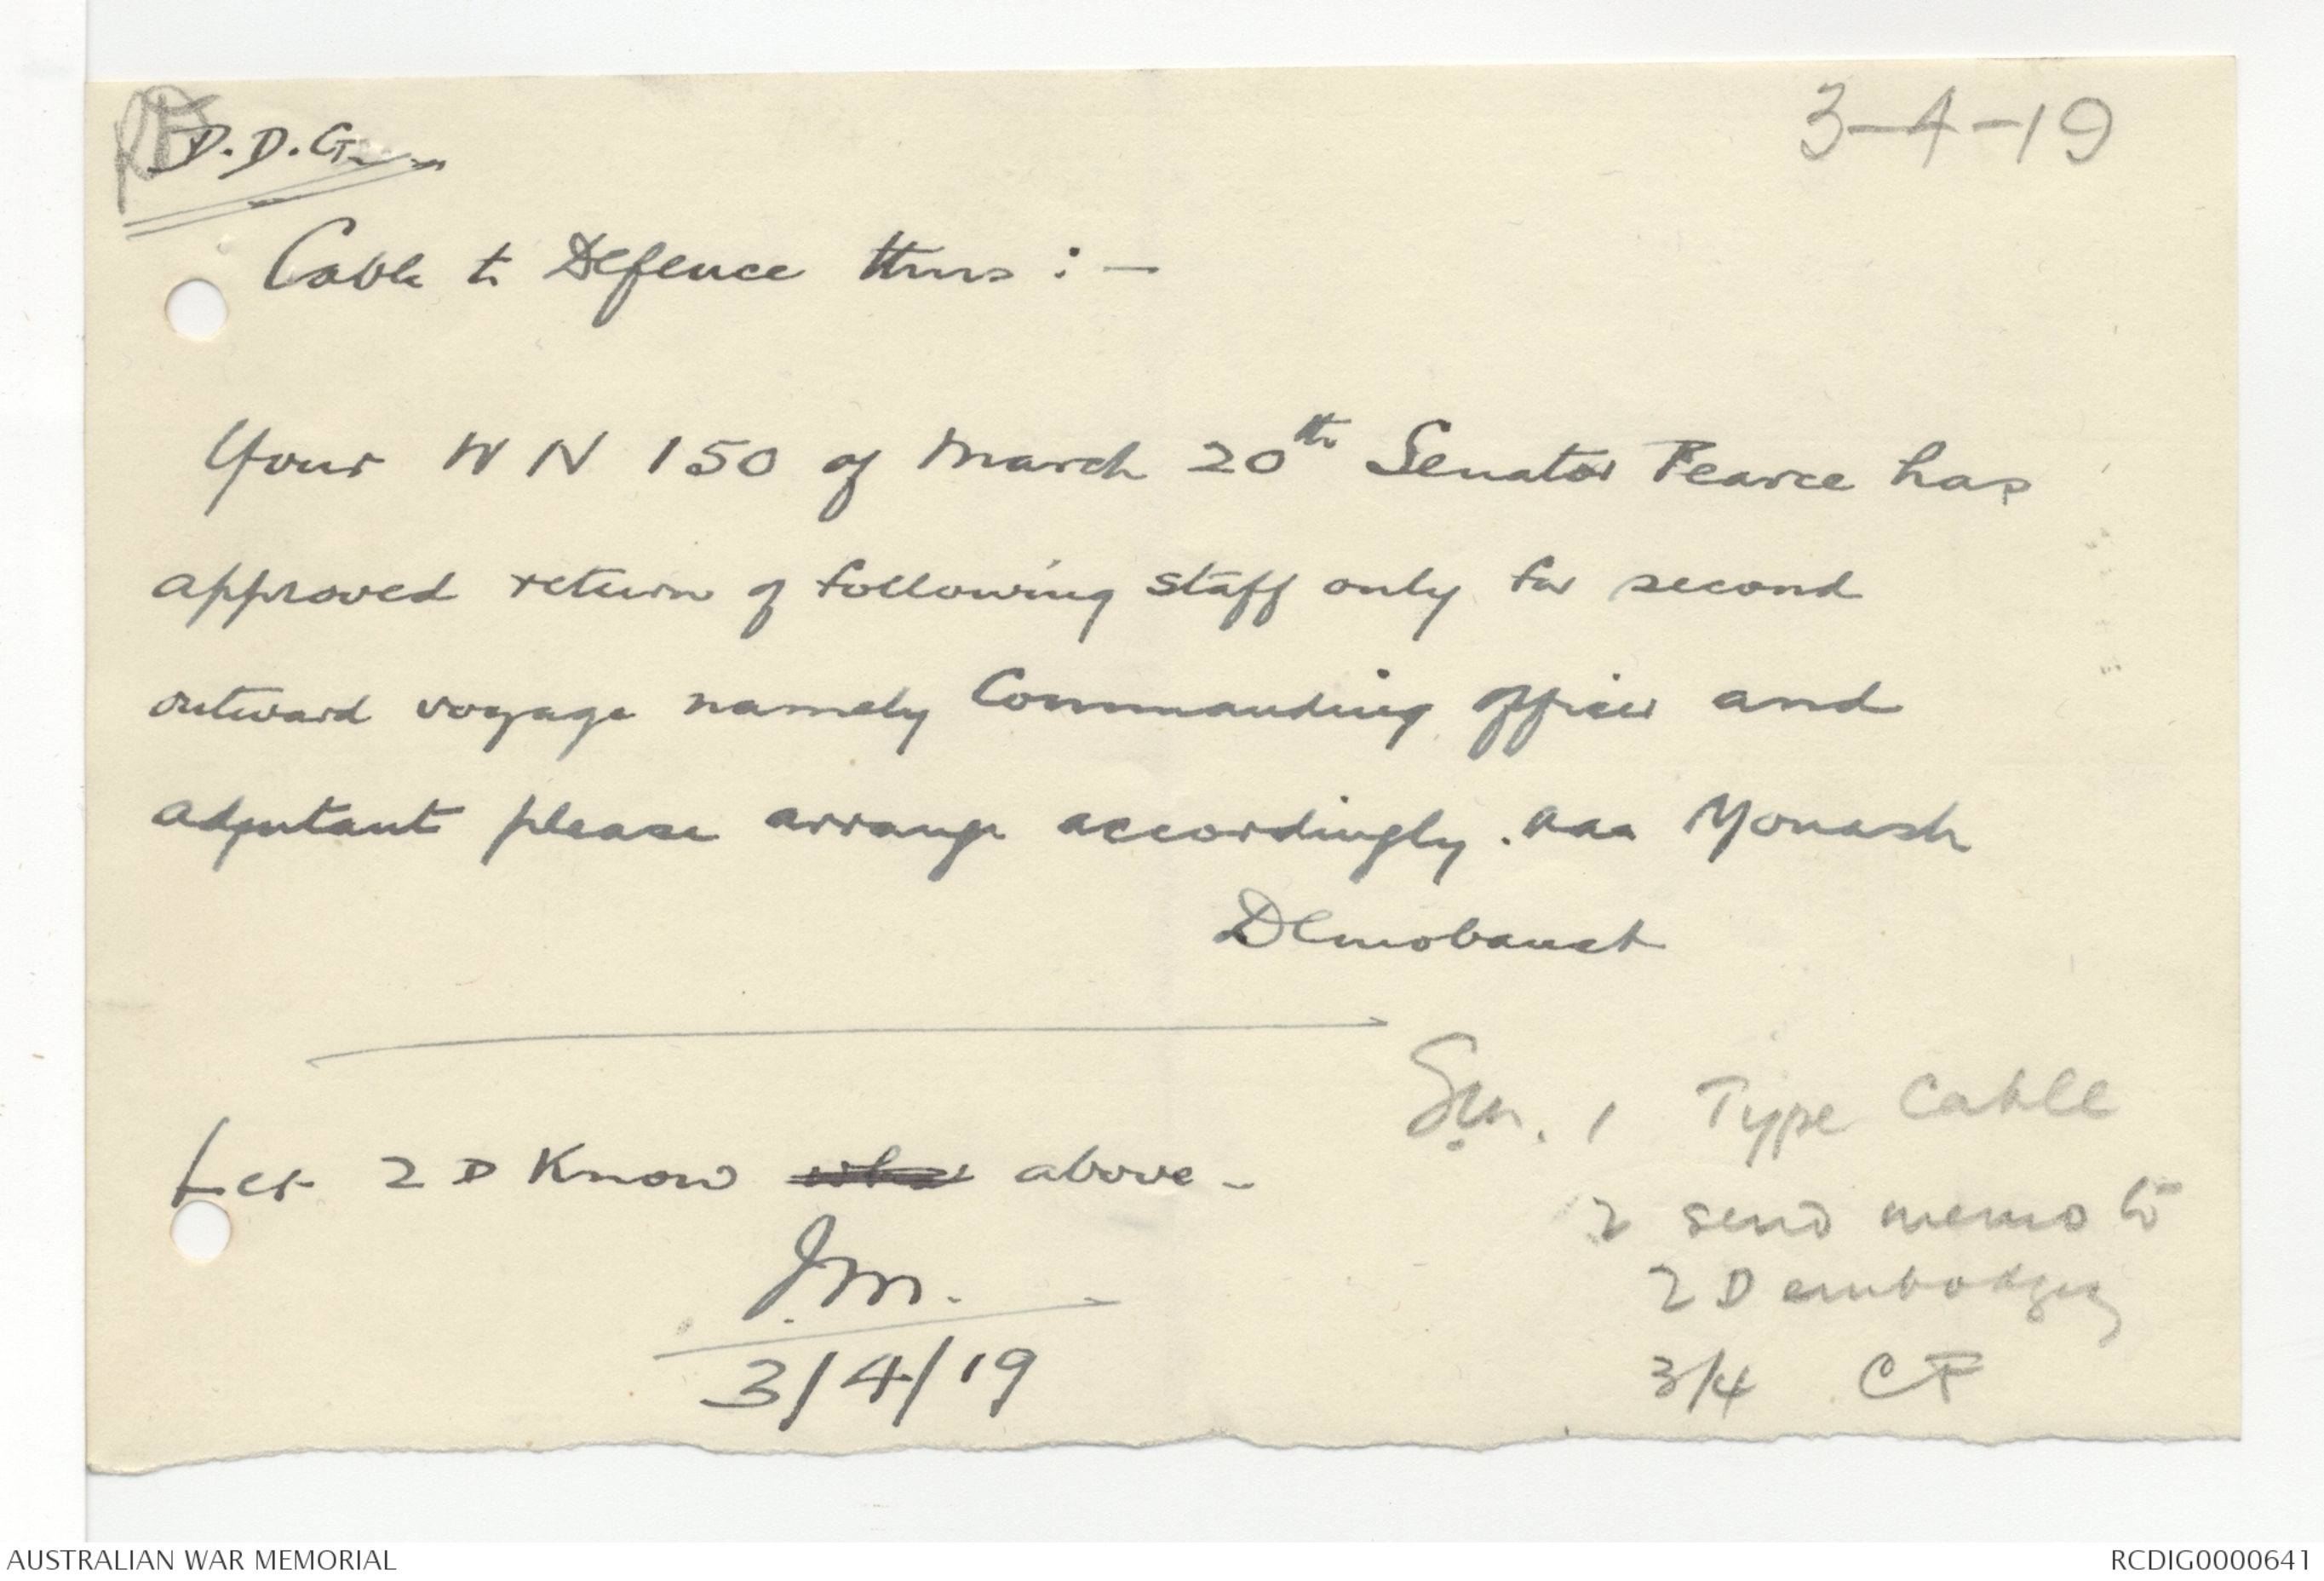 3-4-19
D.D.G.
Cable to Defence thus : -
Your WN 150 of March 20th Senator Pearce has
approved return of following staff only for second
outward voyage namely Commanding officer and
adjutant please arrange accordingly. aaa Monash
Demobaust
Let 2 D Know above -
J.M.
3/4/19
1 Type Cable
2 send memo to
2 D embodying
3/4 CF
AUSTRALIAN WAR MEMORIAL
RCDIG0000641